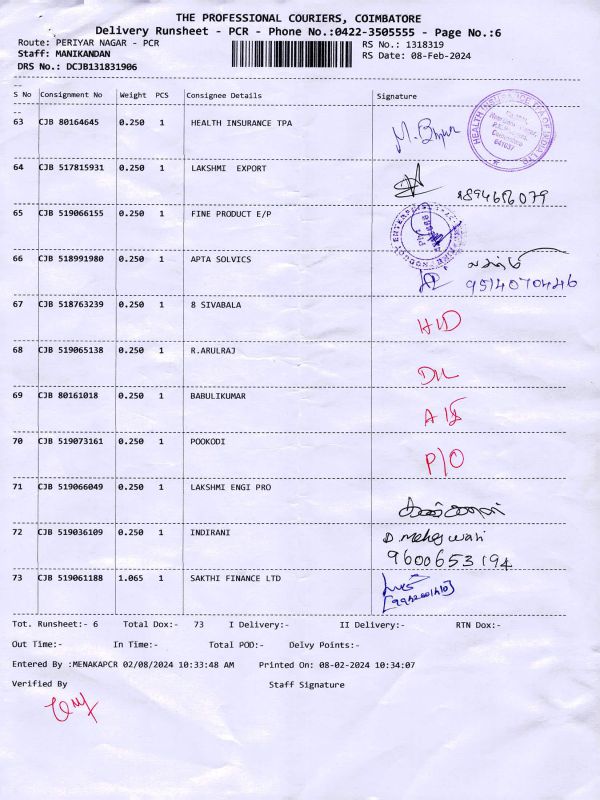 THE PROFESSIONAL COURIERS, COIMBATORE
Delivery Runsheet - PCR - Phone No.:0422-3505555 - Page No.:6
Route: PERIYAR NAGAR - PCR
RS No.: 1318319
Staff: MANIKANDAN
RS Date: 08-Feb-2024
DRS No.: DCJB131831906
S No Consignment No Weight PCS Consignee Details Signature
63 CJB 80164645 0.250 1 HEALTH INSURANCE TPA
64 CJB 517815931 0.250 1 LAKSHMI EXPORT
65 CJB 519066155 0.250 1 FINE PRODUCT E/P
66 CJB 518991980 0.250 1 APTA SOLVICS
9514070446
67 CJB 518763239 0.250 1 8 SIVABALA
H/D
68 CJB 519065138 0.250 1 R.ARULRAJ
D/L
69 CJB 80161018 0.250 1 BABULIKUMAR
70 CJB 519073161 0.250 1 POOKODI
P/O
71 CJB 519066049 0.250 1 LAKSHMI ENGI PRO
72 CJB 519036109 0.250 1 INDIRANI
D Maheswari
9600653194
73 CJB 519061188 1.065 1 SAKTHI FINANCE LTD
Tot. Runsheet:- 6 Total Dox:- 73 I Delivery:- II Delivery:- RTN Dox:-
Out Time:- In Time:- Total POD:- Delvy Points:-
Entered By :MENAKAPCR 02/08/2024 10:33:48 AM Printed On: 08-02-2024 10:34:07
Verified By Staff Signature